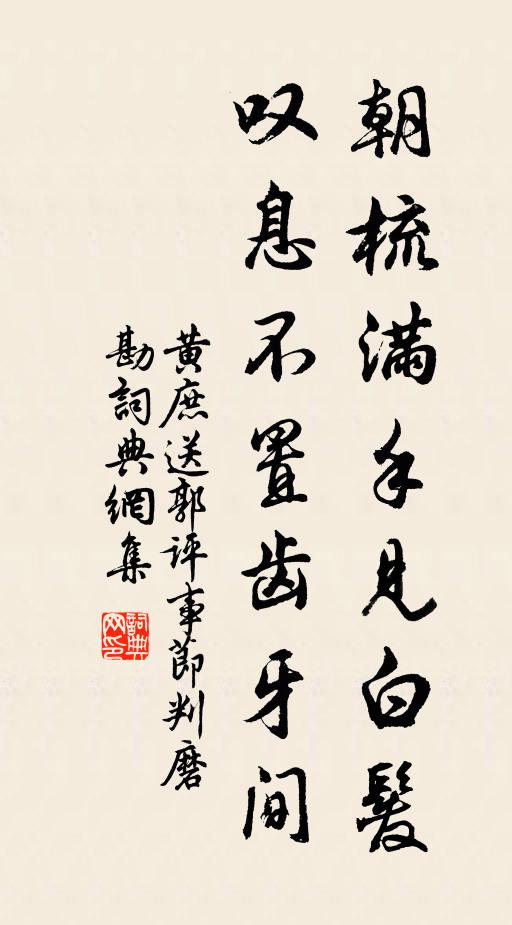 朝梳满手见白髮
叹息不置齿牙间
黄庶送郭评事節判磨
勘詞典網集
詞典网印